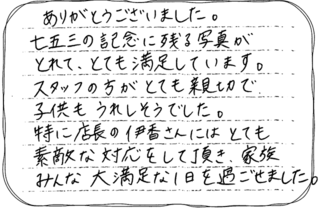 ありがとうございました。
七五三の記念に残る写真が
とれて、とても満足しています。
スタッフの方がとても親切で
子供もうれしそうでした。
特に店長の伊香さんにはとても
素敵な対応をして頂き、家族
みんな大満足な1日を過ごせました。